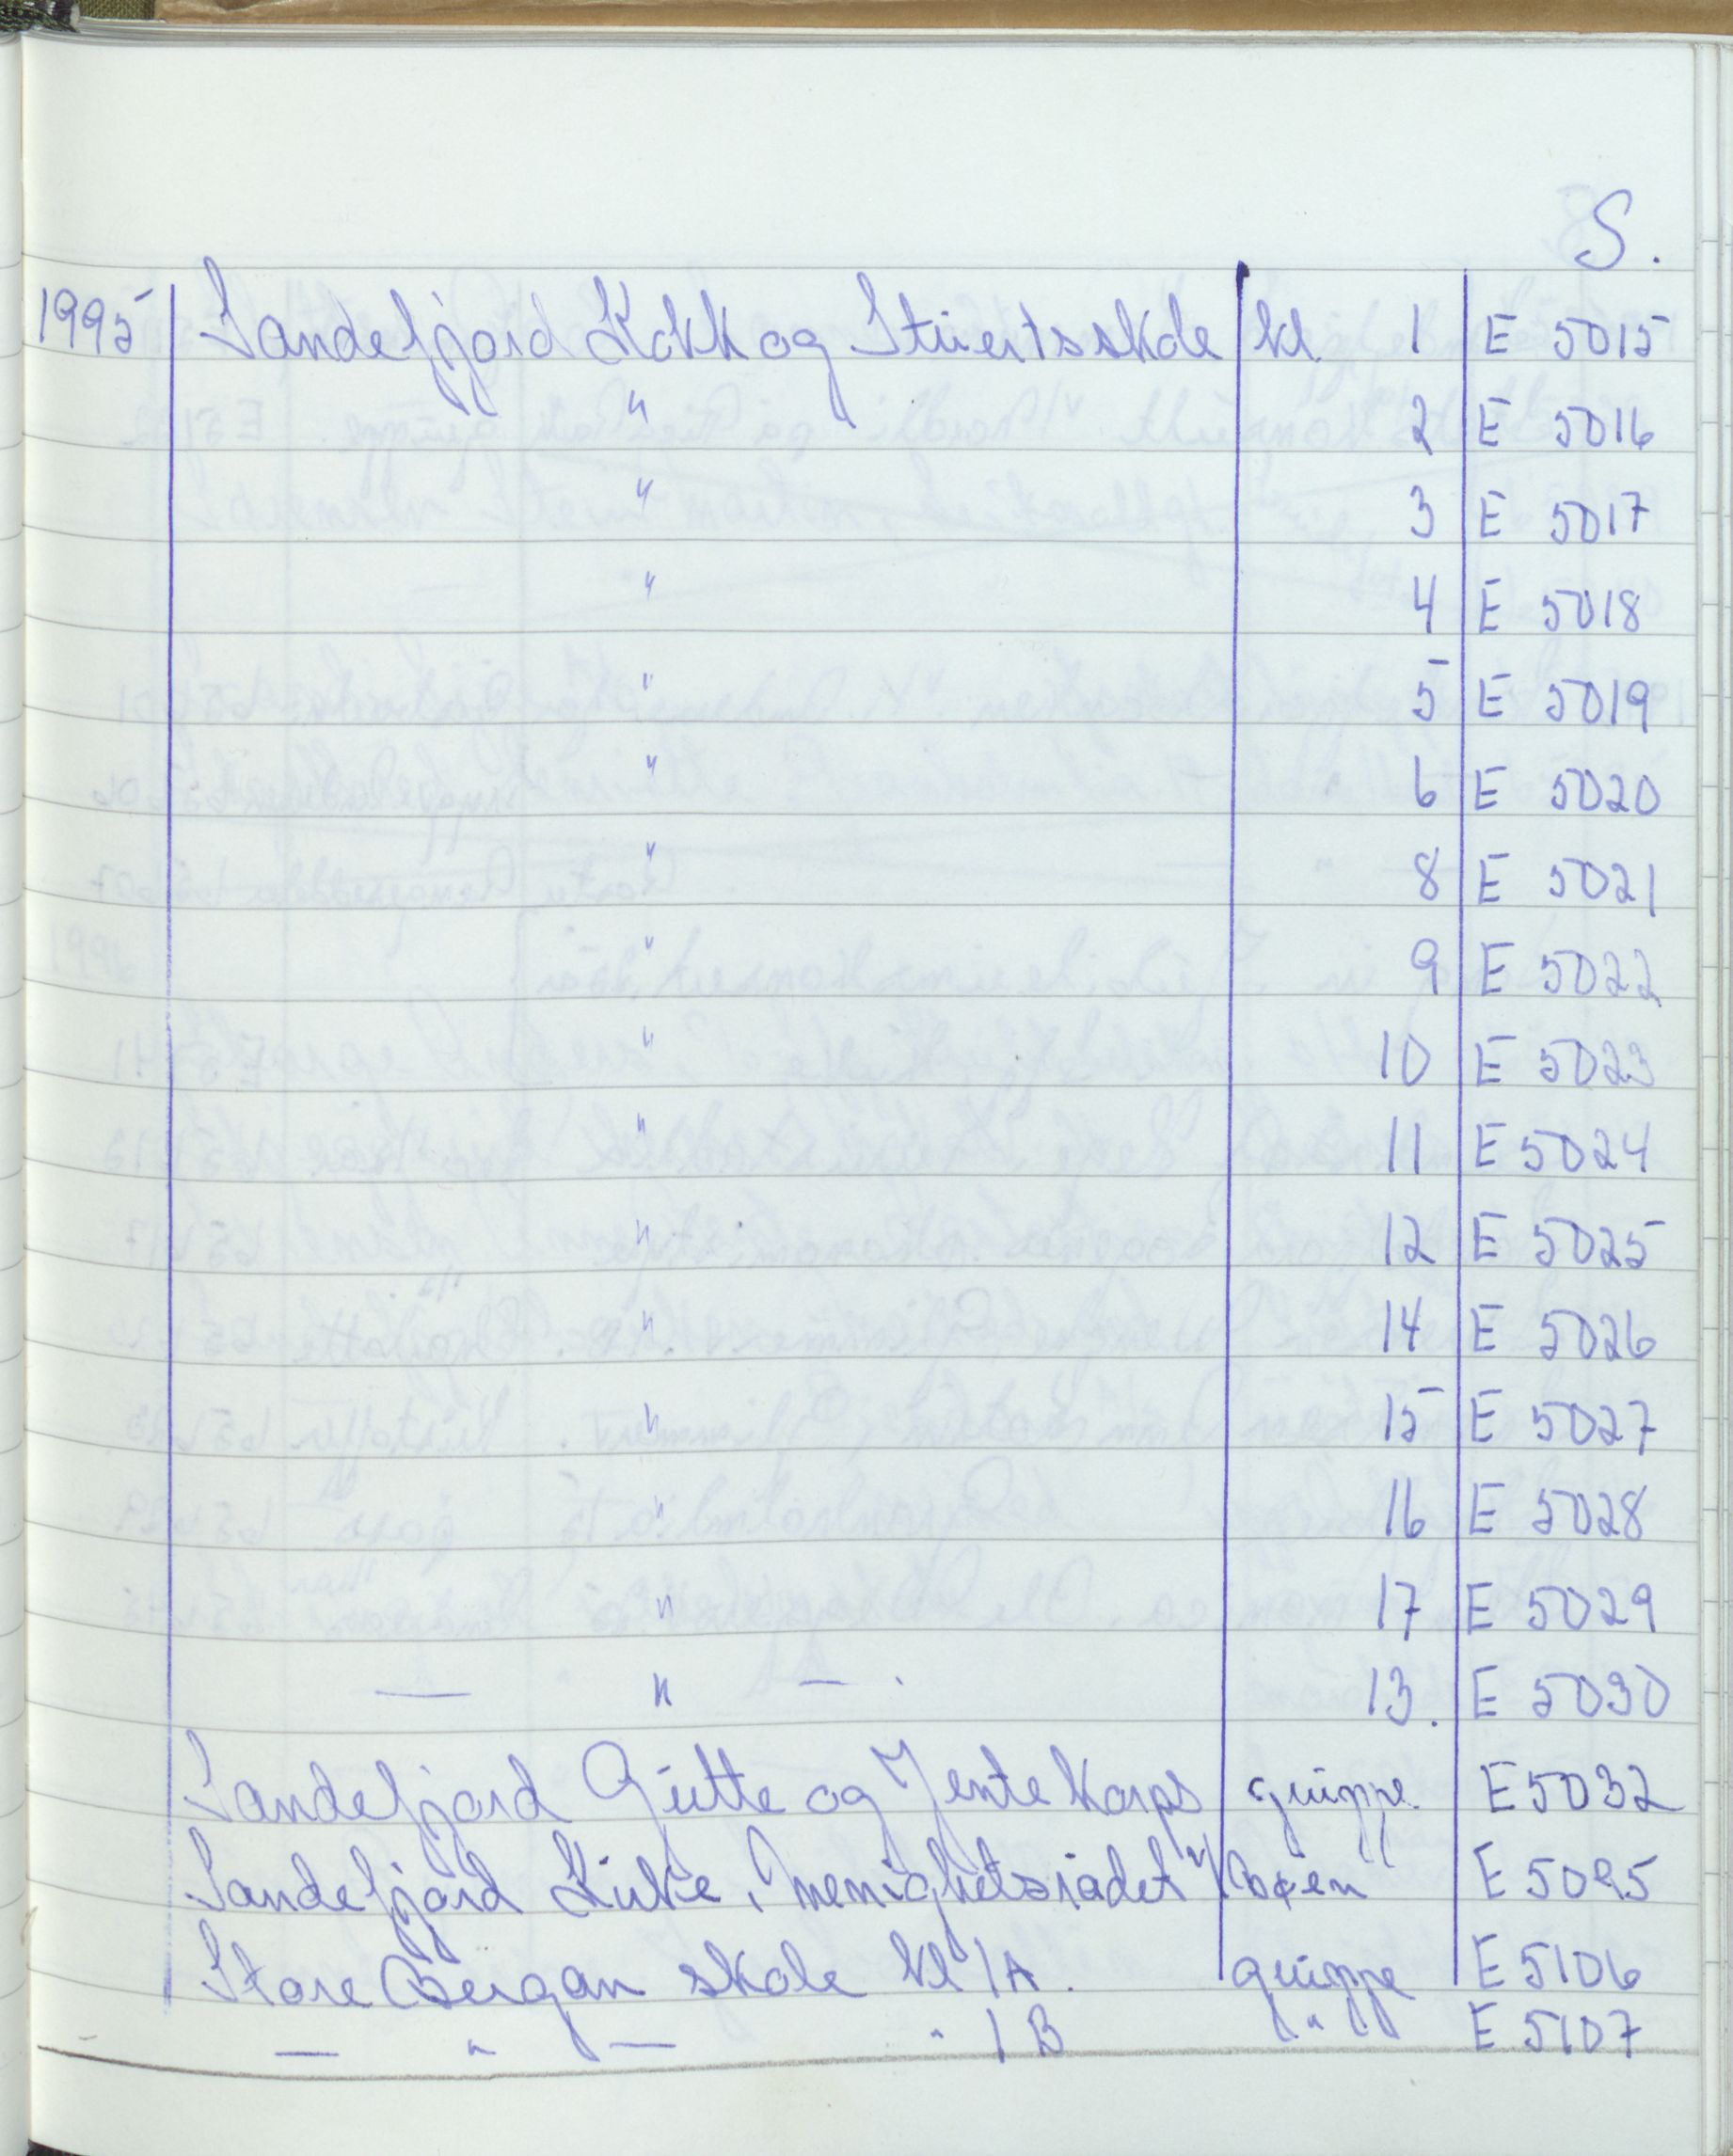 S.
1995 Sandefjord Kokk og Stuertsskole kl. 1 E 5015
" 2 E 5016
" 3 E 5017
" 4 E 5018
" 5 E 5019
" 6 E 5020
" 8 E 5021
" 9 E 5022
" 10 E 5023
" 11 E 5024
" 12 E 5025
" 14 E 5026
" 15 E 5027
" 16 E 5028
" 17 E 5029
— " — . 13. E 5030
Sandefjord Gutte og Jente Korps gruppe. E 5032
Sandefjord Kirke, menighetsrådet v/ E 5095
Store Bergan skole kl 1A. gruppe E 5106
— " — " 1B " E 5107